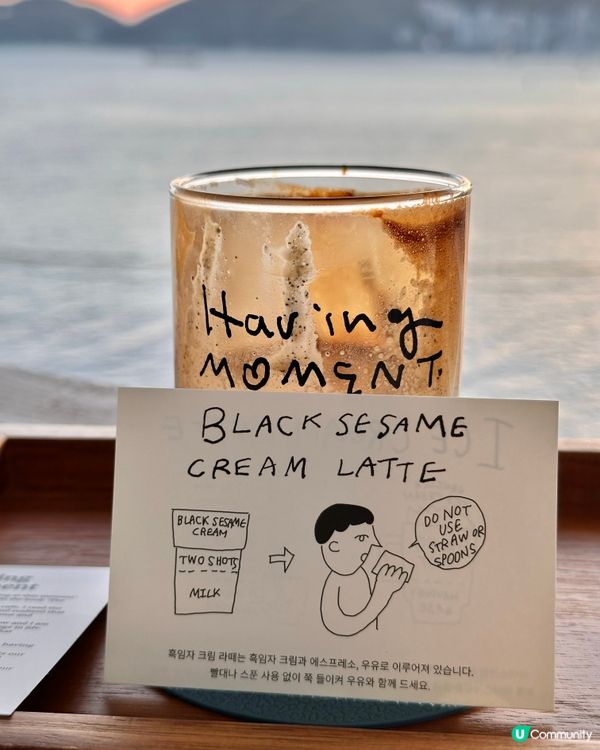 Having
MOMENT.
BLACK SESAME
CREAM LATTE
BLACK SESAME
CREAM
TWO SHOTS
MILK
DO NOT
USE
STRAW OR
SPOONS
흑임자 크림 라떼는 흑임자 크림과 에스프레소, 우유로 이루어져 있습니다.
빨대나 스푼 사용 없이 쭉 들이켜 우유와 함께 드세요.
having
our
U Community